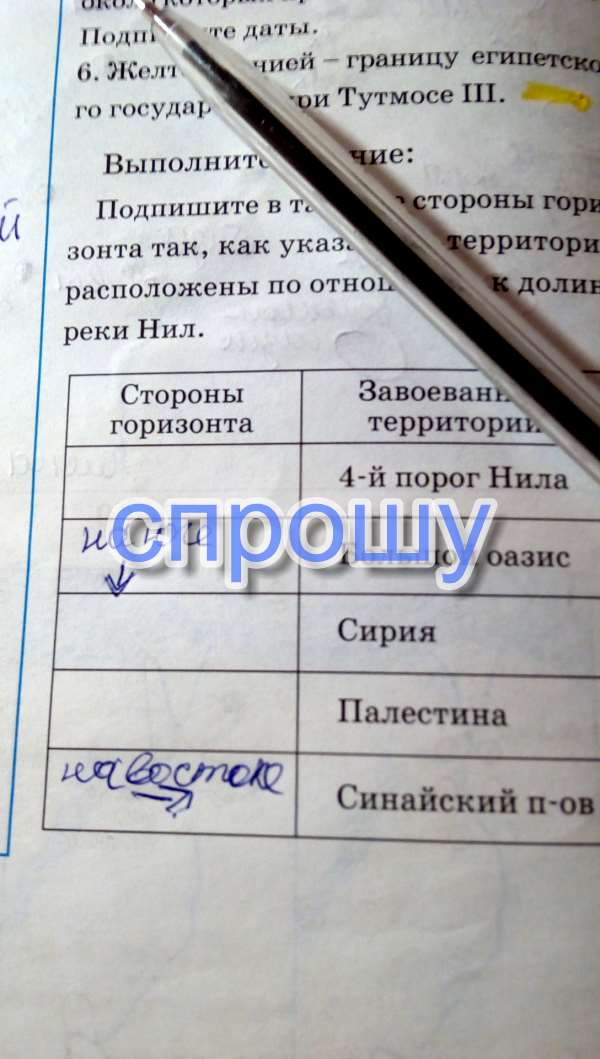 Подпи те даты.
6. Желт нией – границу египетско
го государ ри Тутмосе III.
Выполните ние:
Подпишите в та стороны гори
зонта так, как указа территори
расположены по отнош к долин
реки Нил.
Стороны горизонта
Завоеванн территории
4-й порог Нила
на юге
оазис
Сирия
Палестина
на востоке
Синайский п-ов
спрошу